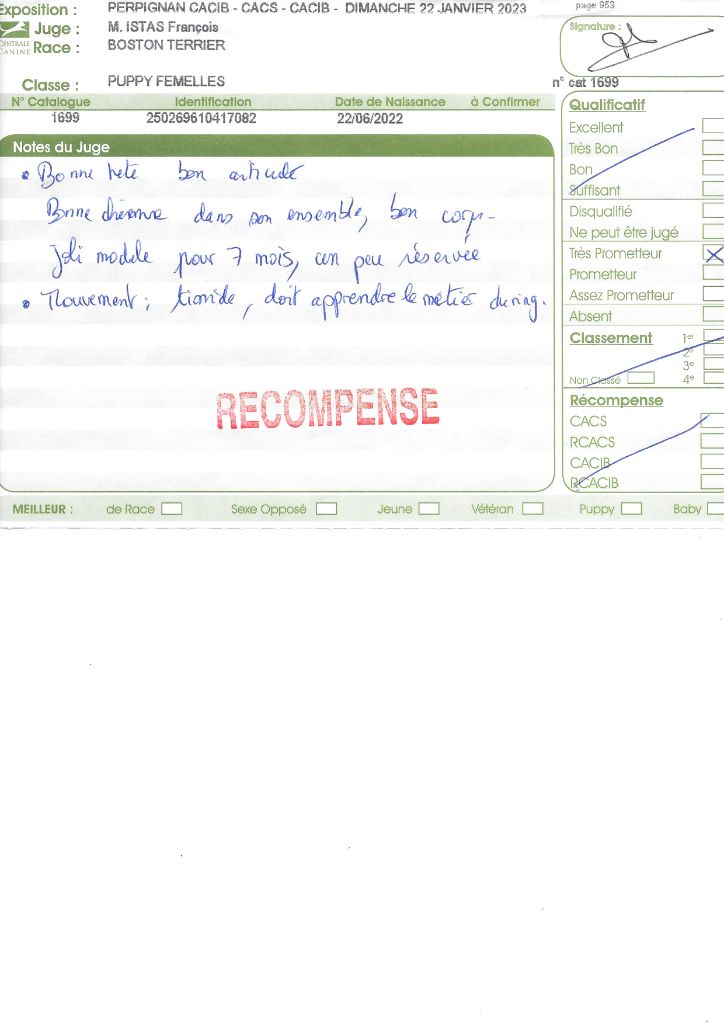 Exposition : PERPIGNAN CACIB - CACS - CACIB - DIMANCHE 22 JANVIER 2023
page 953
Juge : M. ISTAS François
CENTRALE CANINE
Race : BOSTON TERRIER
Signature :
Classe : PUPPY FEMELLES
n° cat 1699
N° Catalogue Identification Date de Naissance à Confirmer
1699 250269610417082 22/06/2022
Notes du Juge
Bonne tete bon
Bonne dans son ensemble, bon corp-
Joli modele pour 7 mois, un peu réservée
Mouvement : timide, doit apprendre le métier du ring.
RECOMPENSE
Qualificatif
Excellent
Très Bon
Bon
Suffisant
Disqualifié
Ne peut être jugé
Très Prometteur X
Prometteur
Assez Prometteur
Absent
Classement 1er
2e
3e
Non Classé 4e
Récompense
CACS
RCACS
CACIB
RCACIB
MEILLEUR : de Race Sexe Opposé Jeune Vétéran Puppy Baby